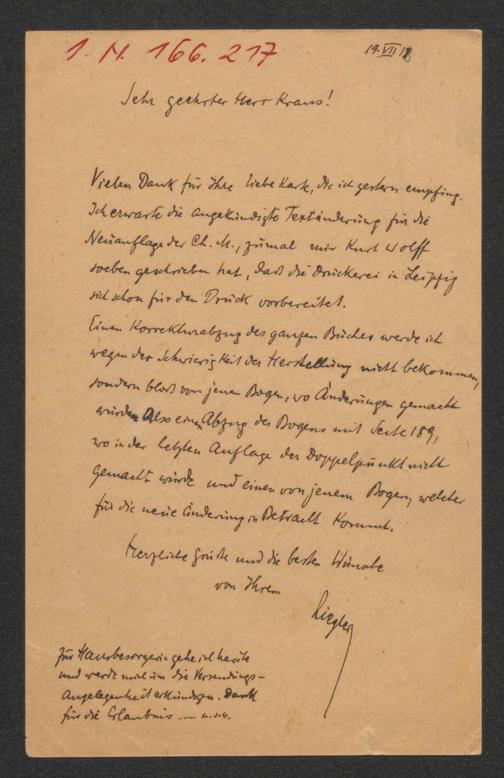 1. N. 166.217
19. VII 18
Sehr geehrter Herr Kraus!
Vielen Dank für Ihre liebe Karte, die ich gestern empfing.
Ich erwarte die angekündigte Textänderung für die
Neuauflage der Ch. M., zumal mir Kurt Wolff
soeben geschrieben hat, daß die Druckerei in Leipzig
sich schon für den Druck vorbereitet.
Einen Korrekturabzug des ganzen Buches werde ich
wegen der Schwierigkeit der Herstellung nicht bekommen,
sondern bloß von jenen Bogen, wo Änderungen gemacht
würden. Also einen Abzug des Bogens mit Seite 189,
wo in der letzten Auflage der Doppelpunkt nicht
gemacht würde und einen von jenem Bogen, welcher
für die neue Änderung in Betracht kommt.
Herzliche Grüße und die besten Wünsche
von Ihrem
Liegler
Zur Hausbesorgerin gehe ich heute
und werde mich um die Versendungs-
angelegenheit erkundigen. Dank
für die Erlaubnis u.s.w.